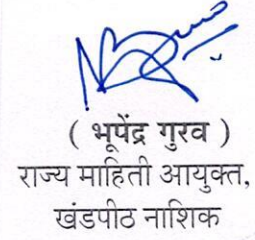 ( भूपेंद्र गुरव )
राज्य माहिती आयुक्त,
खंडपीठ नाशिक